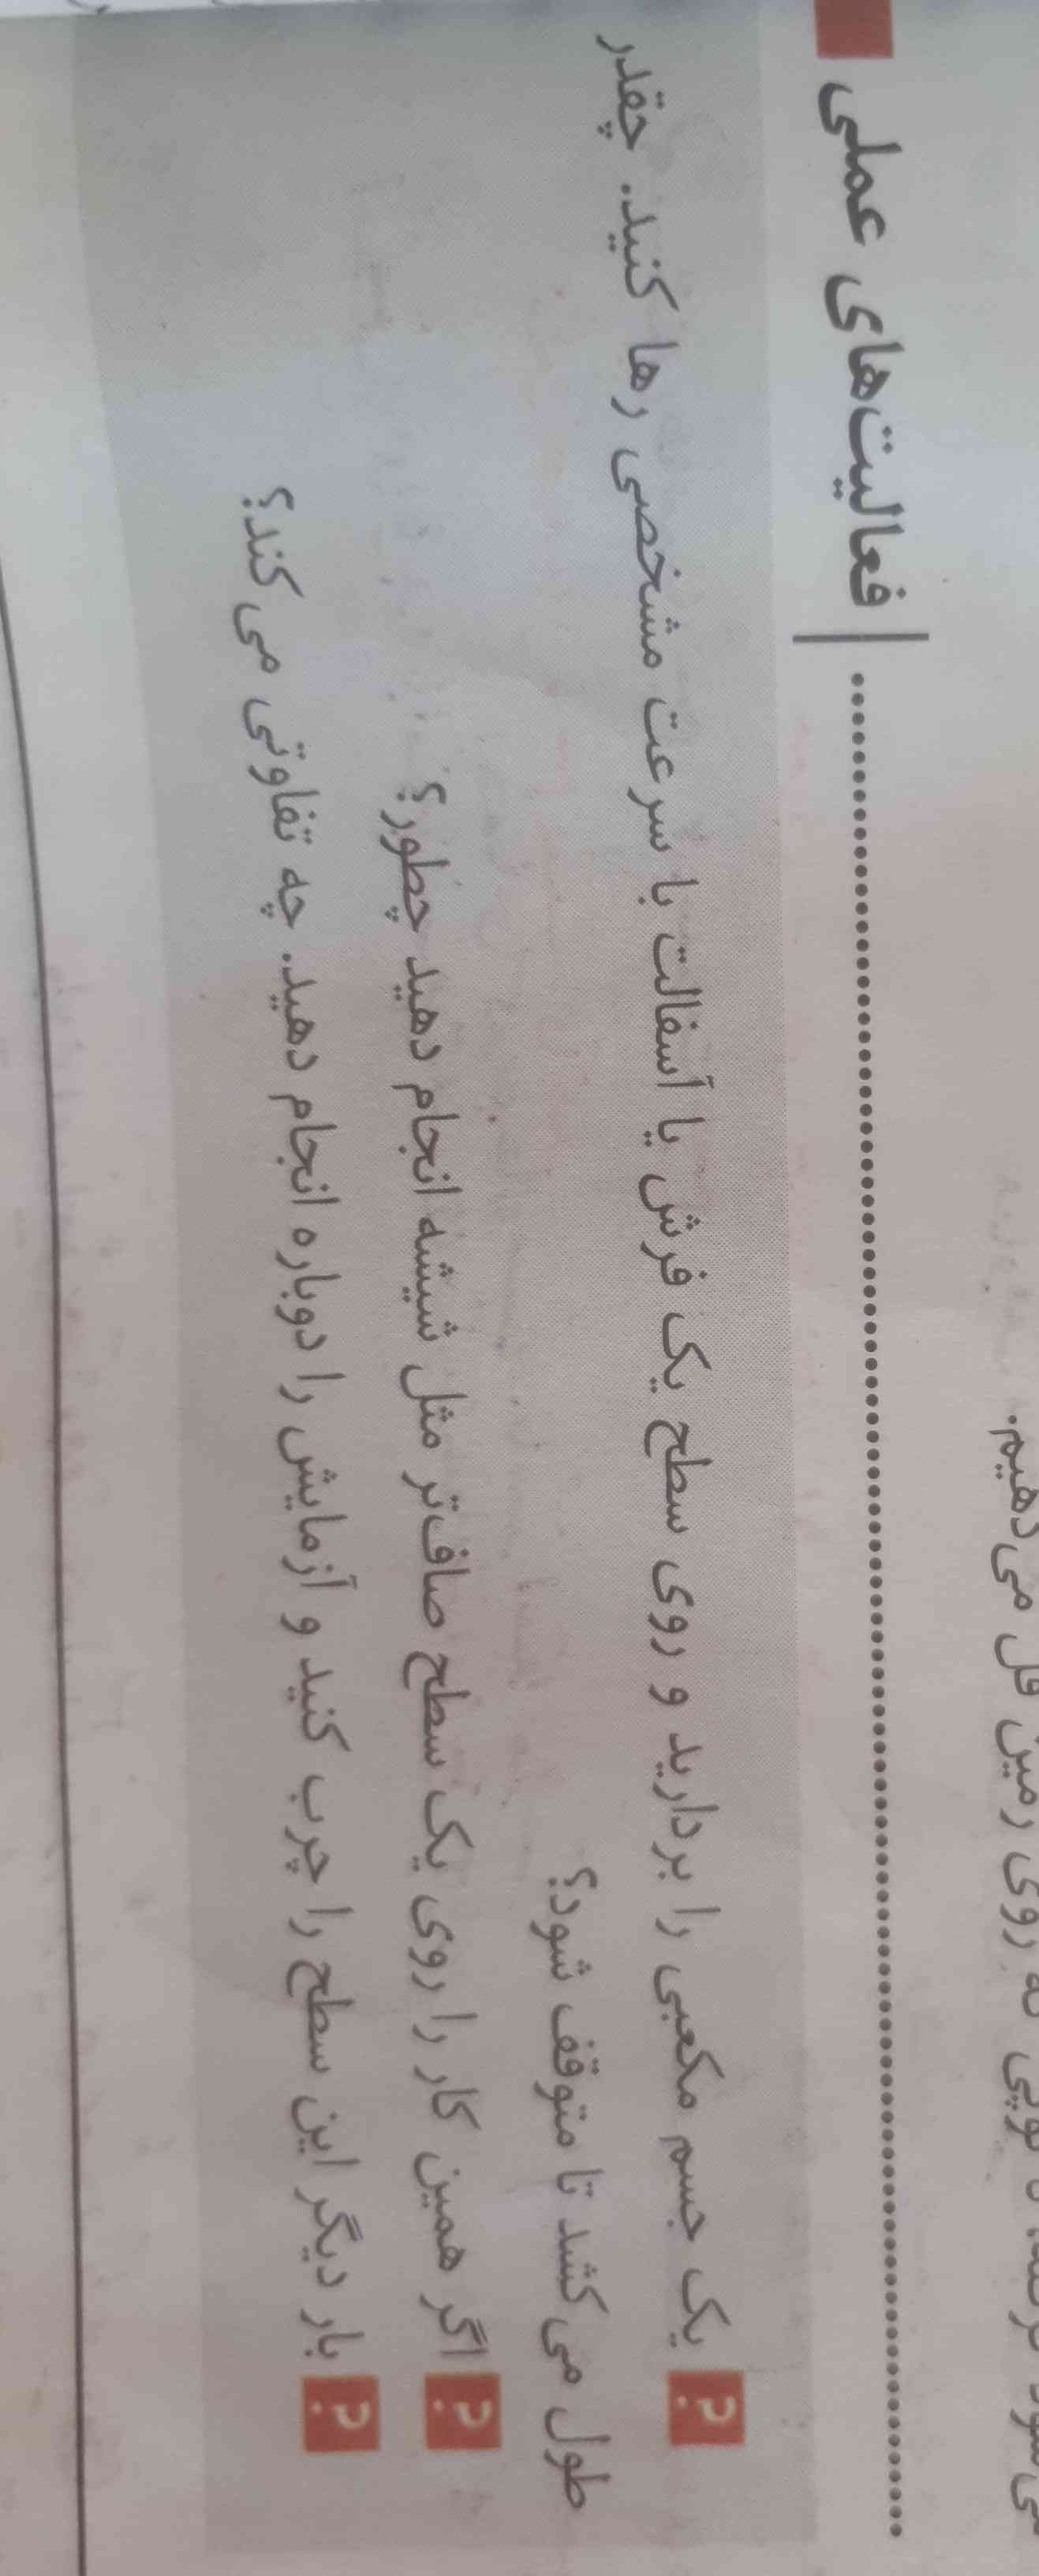 می‌دهیم.
فعالیت‌های عملی
؟ یک جسم مکعبی را بردارید و روی سطح یک فرش یا آسفالت با سرعت مشخصی رها کنید. چقدر
طول می‌کشد تا متوقف شود؟
؟ اگر همین کار را روی یک سطح صاف‌تر مثل شیشه انجام دهید چطور؟
؟ بار دیگر این سطح را چرب کنید و آزمایش را دوباره انجام دهید. چه تفاوتی می‌کند؟